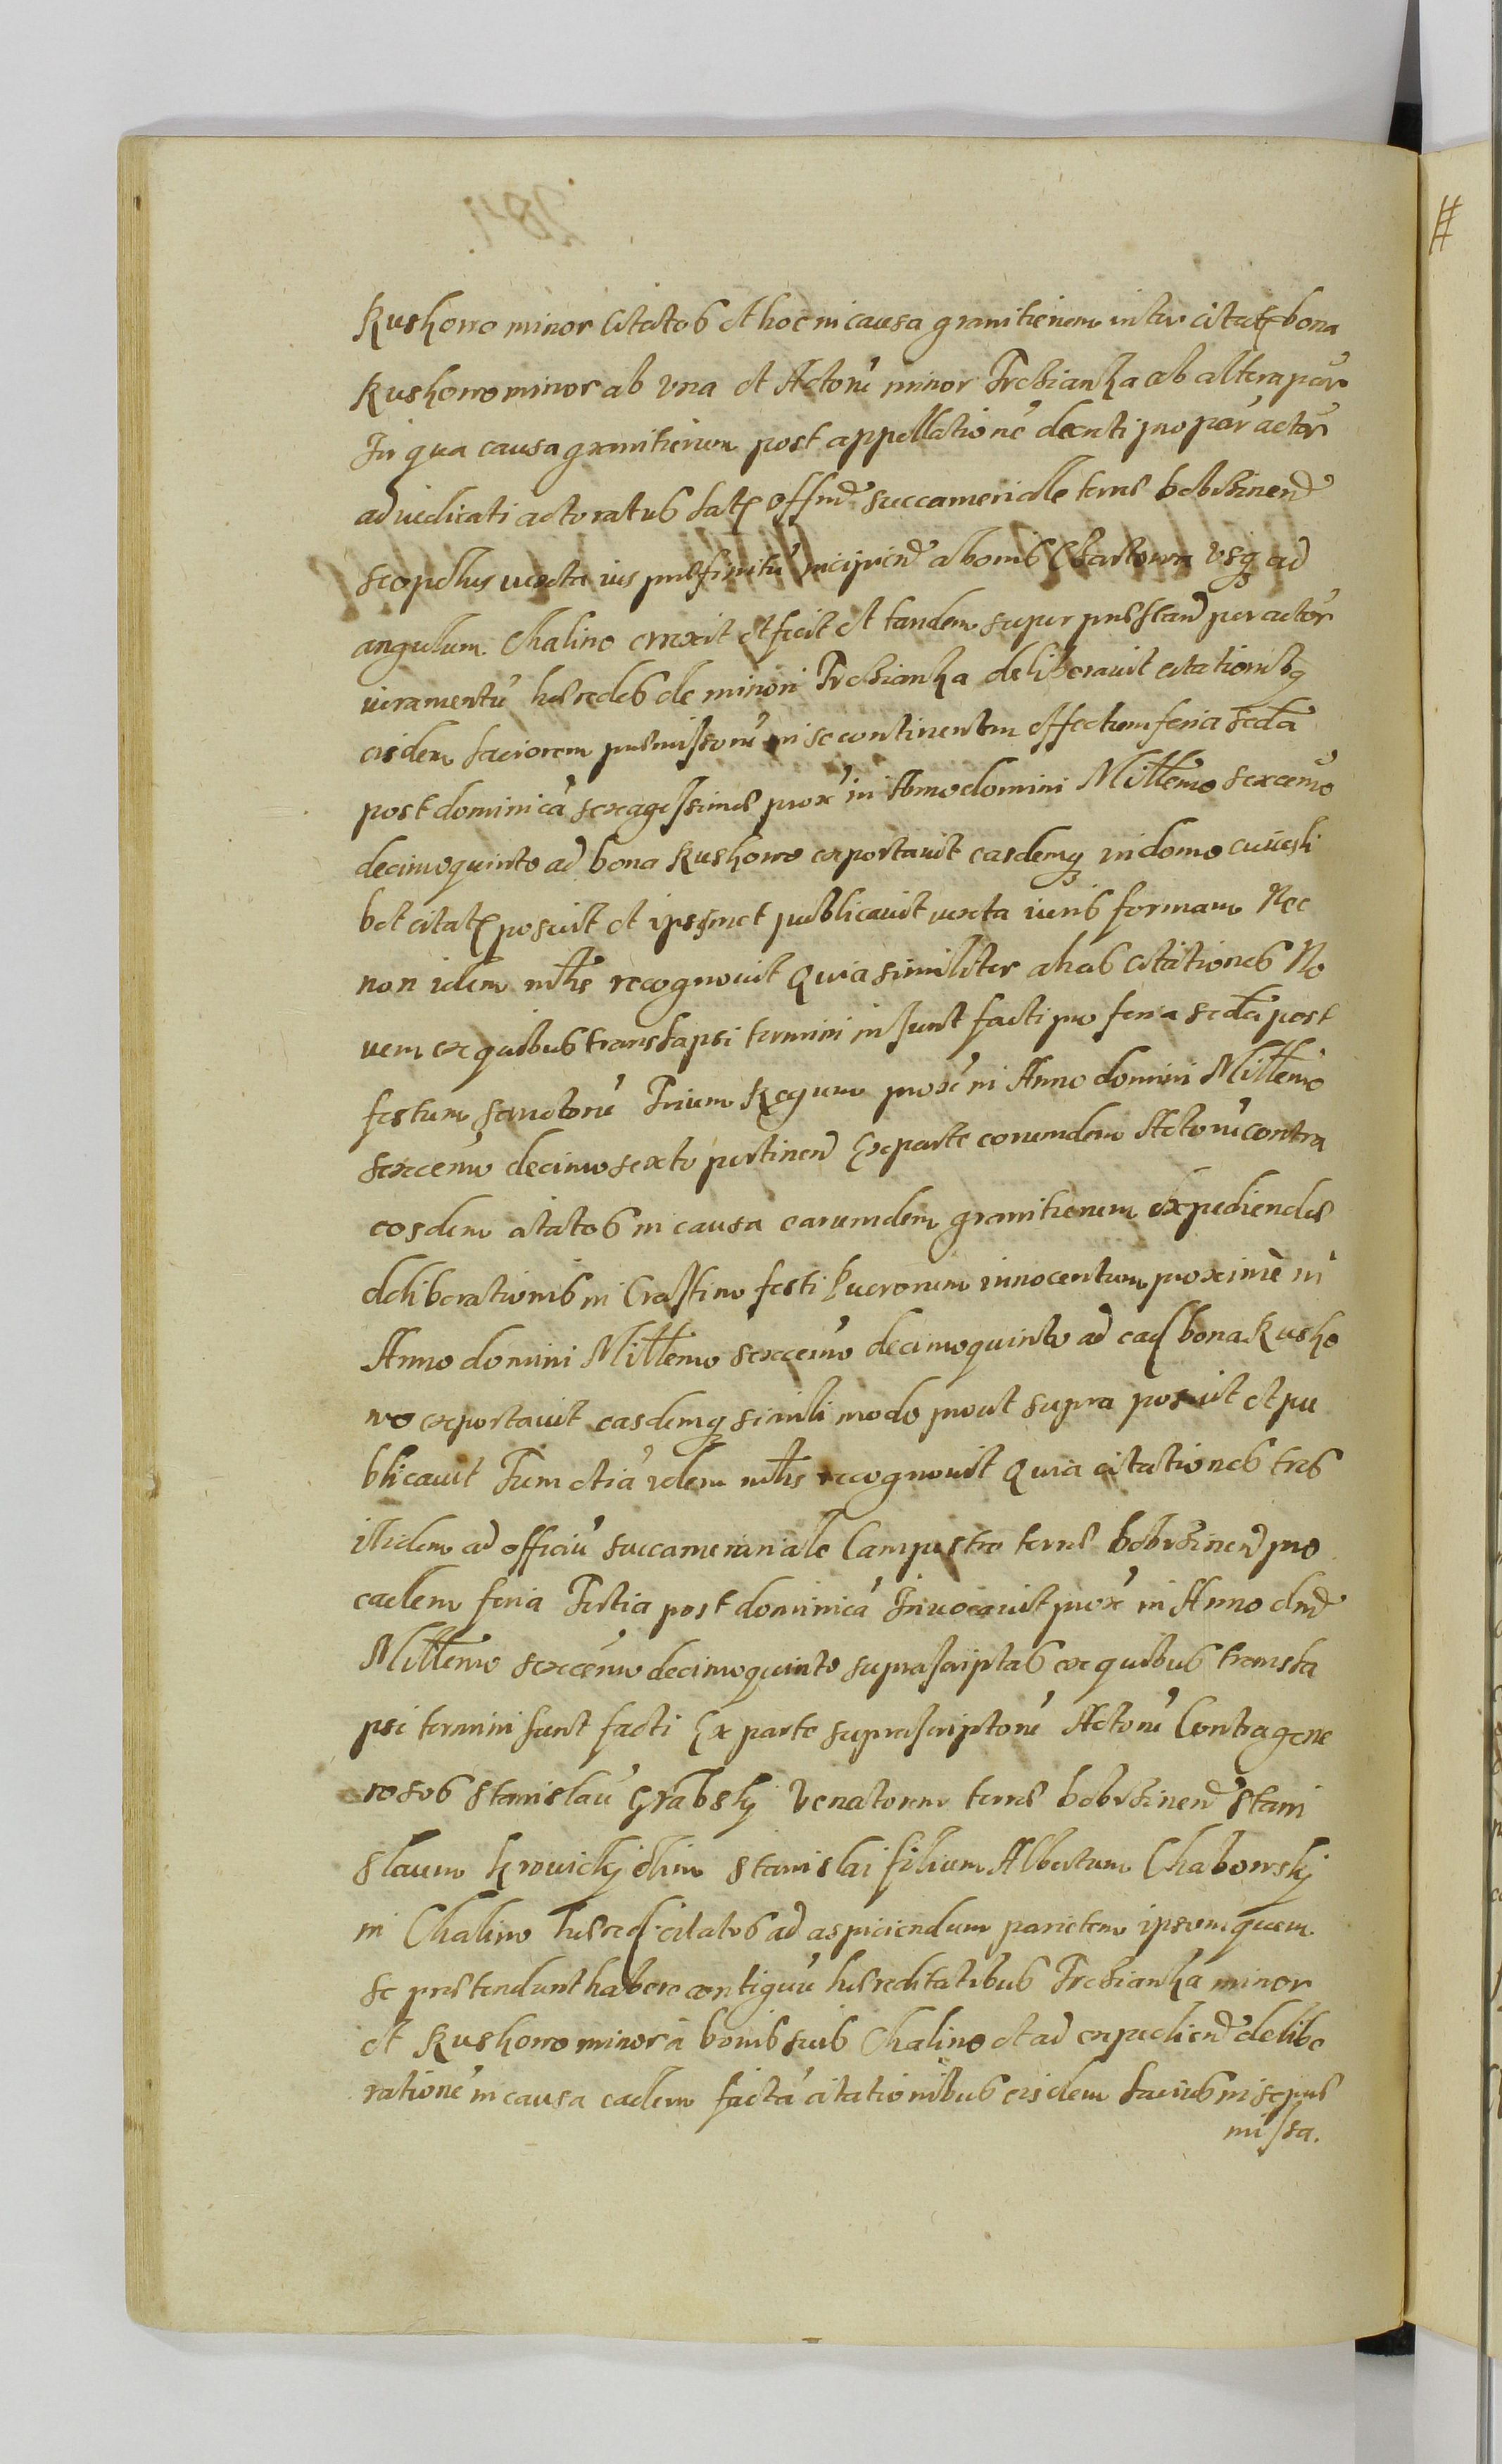 Ruskowo minor Citatos et hoc in causa granitierum inter citatę bona
Ruskowo minor ab vna et Actorū minor Trebianka ab altera par
In qua causa granitierum post appellationē decreti pro par actor
adiudicati actoratus latę offm succameriale terræ bobrzinen
scopulus iuxta ius præfinitū incipien a bonis Charlowa vsq ad
angulum Chalino erexit et fecit et tandem super præstan per actor
iuramentū hæredes de minori Trebianka deliberavit citationibq
eisdem laciorem præmissorū in se continentem effectum feria scda
post dominicā sexagessimæ prox in Anno domini Millemo sexcemo
decimoquinto ad bona Ruskowo exportavit easdemq in domo cuiusli
bet citatę posuit et ipsemet publicavit iuxta iuris formam Nec
non idem mtlis recognovit Quia similiter alias citationes No
vem ex quibus translapsi termini insunt facti pro feria scda post
festum sanctorū Trium Regum prox in Anno domini Millemo
sexcemo decimo sexto pertinen Ex parte eorumdem Actorū contra
eosdem citatos in causa earumdem granitierum expediendæ
deliberationis in Crastino festi Puerorum innocentum proximè in
Anno domini Millemo sexcemo decimoquinto ad ead bona Rusko
wo exportavit easdemq simili modo prout supra posuit et pu
blicavit Tum etiā idem mtlis recognovit Quia citationes tres
itidem ad officiū succamerariale Campestre terræ bobrzinen pro
eadem feria Tertia post dominicā Invocavit prox in Anno dni
Millemo sexcemo decimoquinto suprascriptas ex quibus transla
psi termini sunt facti Ex parte suprascriptorū Actorū Contra gene
rosos Stanislaū Grabsky Venatorem terræ bobrzinen Stani
slaum Krowicky olim Stanislai filium Albertum Chabowsky
in Chalino hæred citatos ad aspiciendum parietem ipsorum quem
se prætendunt habere contiguū hæreditatibus Trebianka minor
et Ruskowo minor à bonis suis Chalino et ad expedien delibe
rationē in causa eadem factā citationibus eisdem lacius in se præ
missa.